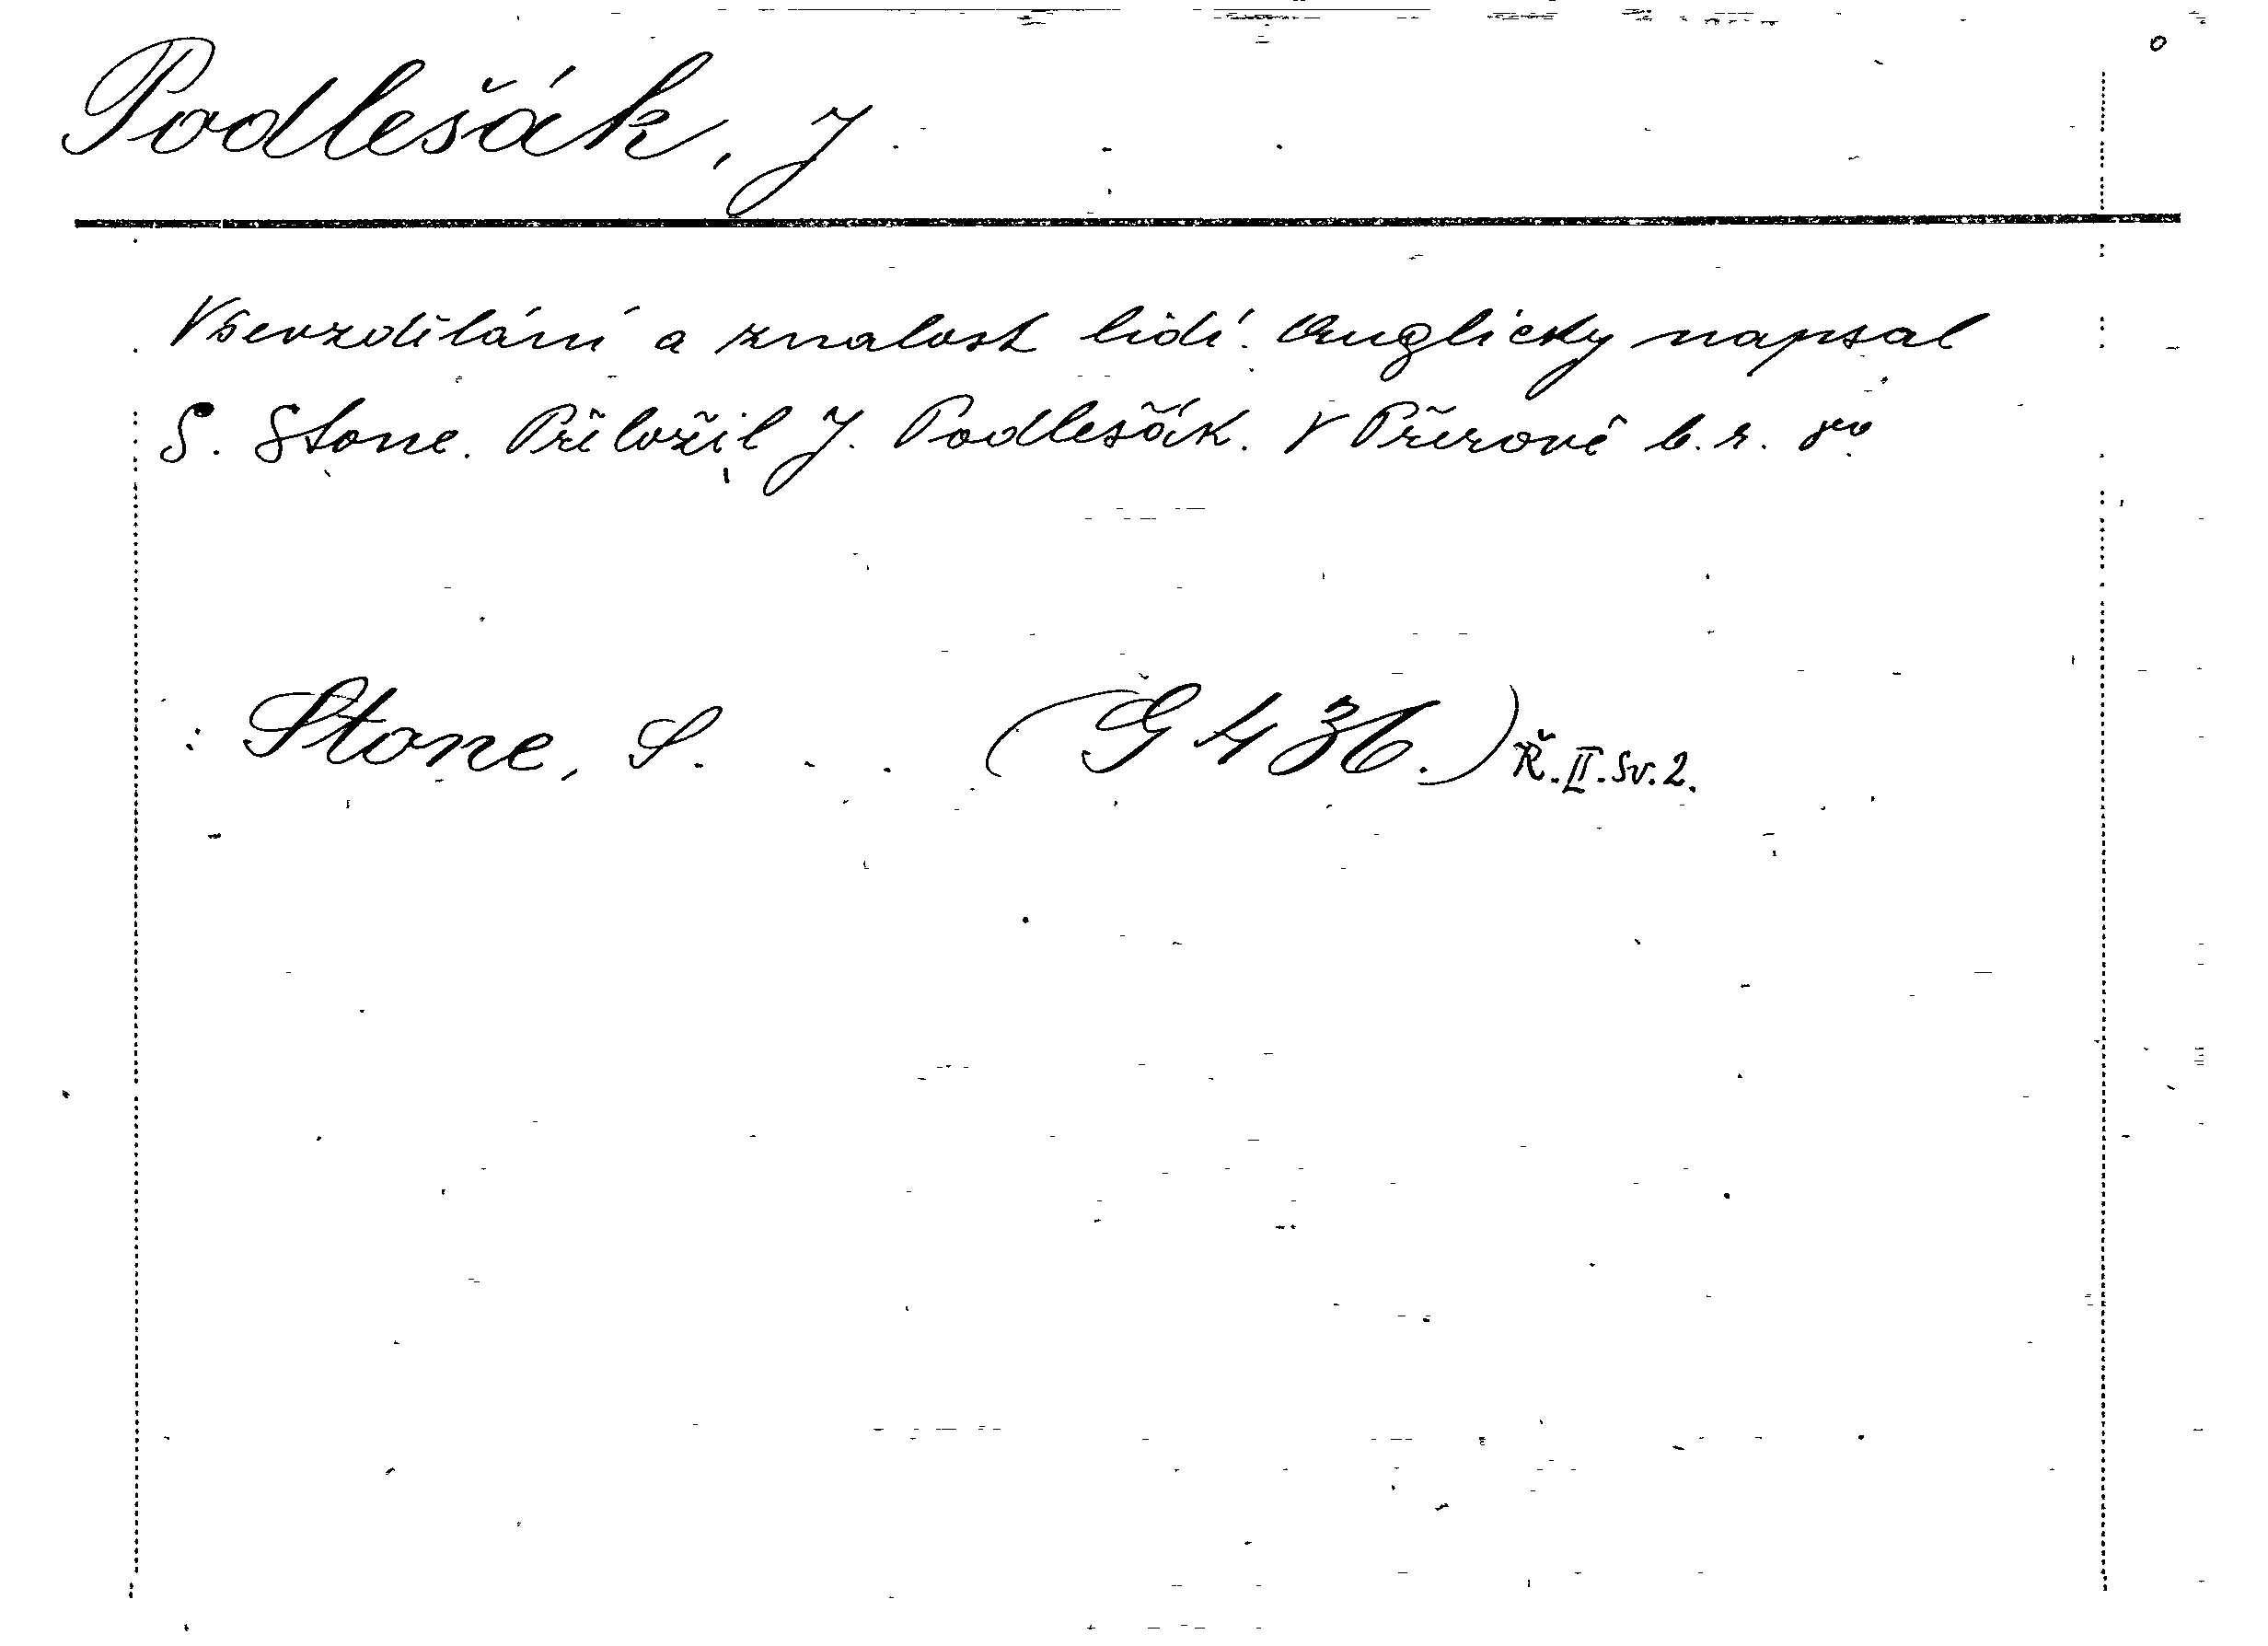 Podlešák, J.
Vševzdělání a znalost lidí. Anglicky napsal
S. Stone. Přeložil J. Podlešák. V Přerově b. r. 8º
Stone, S. (G 436.) Ř. II. Sv. 2.